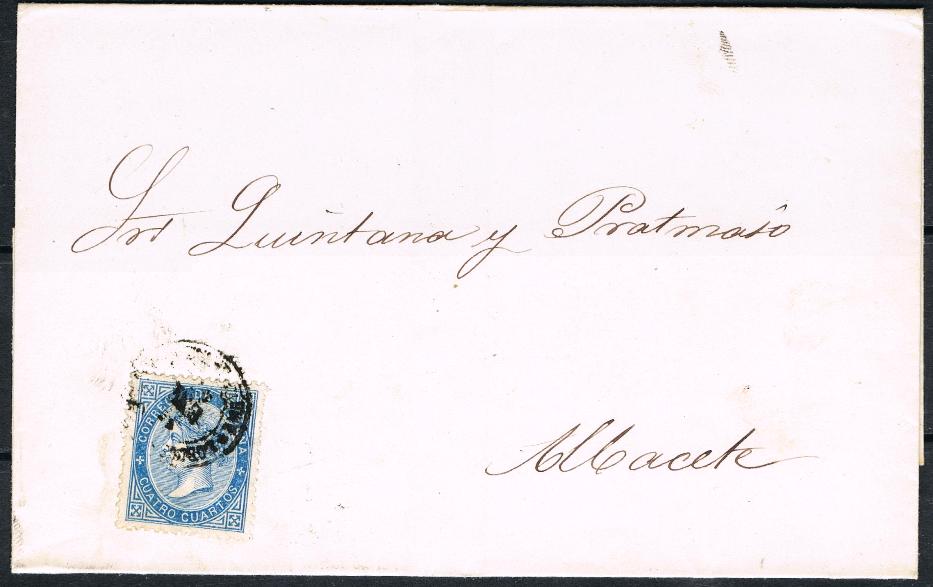 Srs Quintana y Pratmasó
Albacete
CORREOS DE ESPAÑA
CUATRO CUARTOS